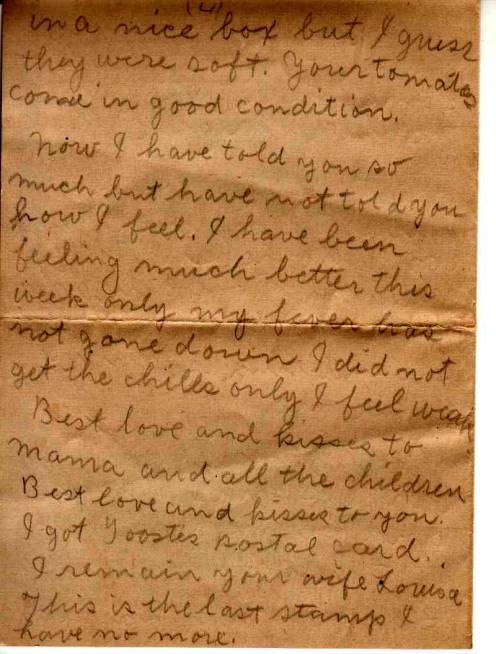 (4)
in a nice box but I guess
they were soft. Your tomatoes
come in good condition.
Now I have told you so
much but have not told you
how I feel. I have been
feeling much better this
week only my fever has
not gone down I did not
get the chills only I feel weak
Best love and kisses to
mama and all the children
Best love and kisses to you.
I got Yoostes postal card.
I remain your wife Louise
This is the last stamp I
have no more.